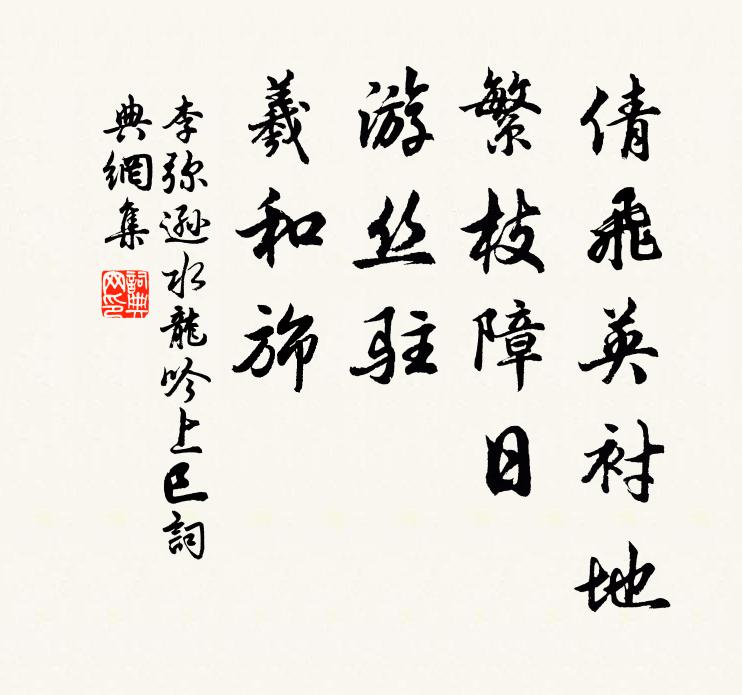 倩飛英衬地
繁枝障日
游丝駐
羲和斾
李弥遜水龍吟上巳詞
典網集
詞典網印